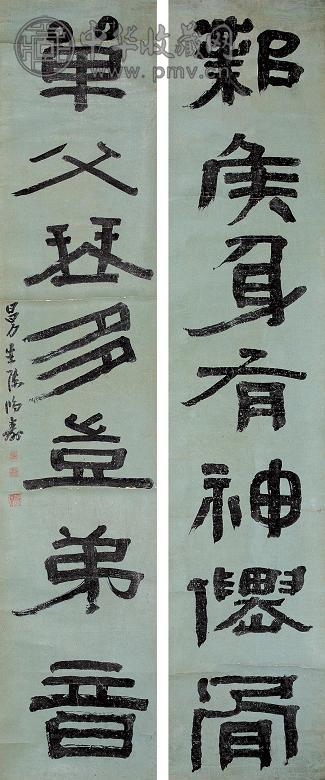 中华收藏网
www.pmv.cn
鄴侯身有神僊骨
單父琴多豈弟音
曼生陳鴻壽